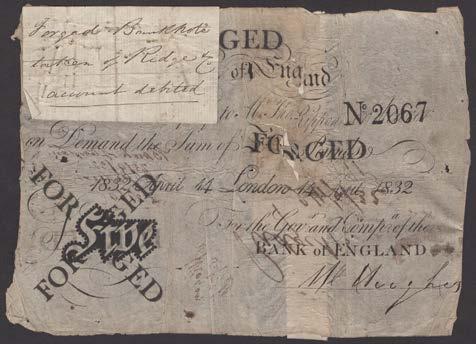 Forged Bank Note
taken of Ridge & Co
account debited
GED
of England
to Mr. Thos. Rippon No 2067
on Demand the Sum of
FORGED
1832 April 14 London 14 April 1832
For the Govr. and Compa. of the
BANK of ENGLAND
FORGED
Five
FORGED